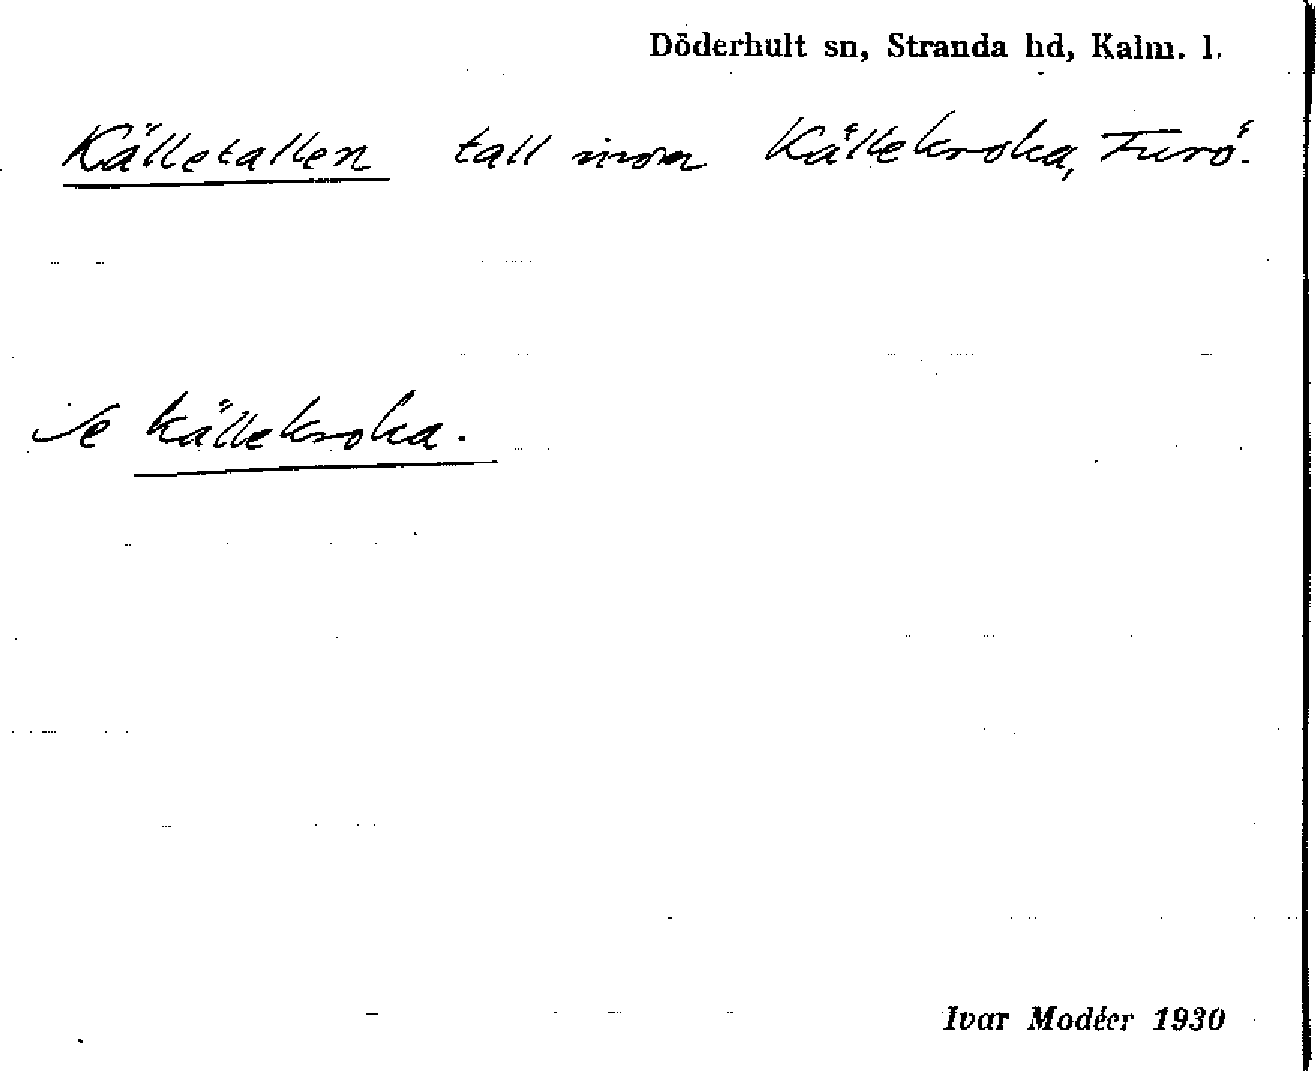 Döderhult sn, Stranda hd, Kalm. l.
Källetallen tall inom Källekroka, Furö.
Se Källekroka.
Ivar Modéer 1930